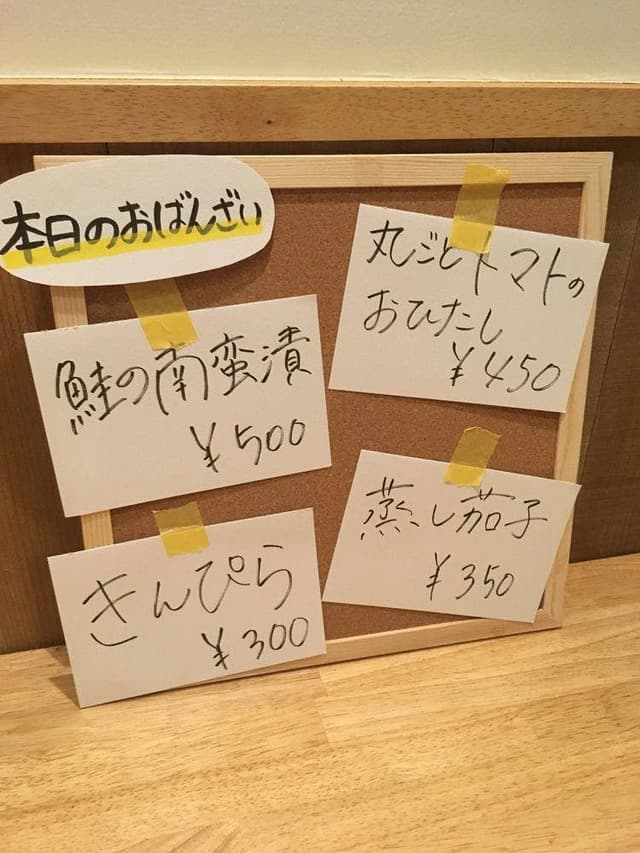 本日のおばんざい
鮭の南蛮漬
¥500
きんぴら
¥300
丸ごとトマトの
おひたし
¥450
蒸し茄子
¥350